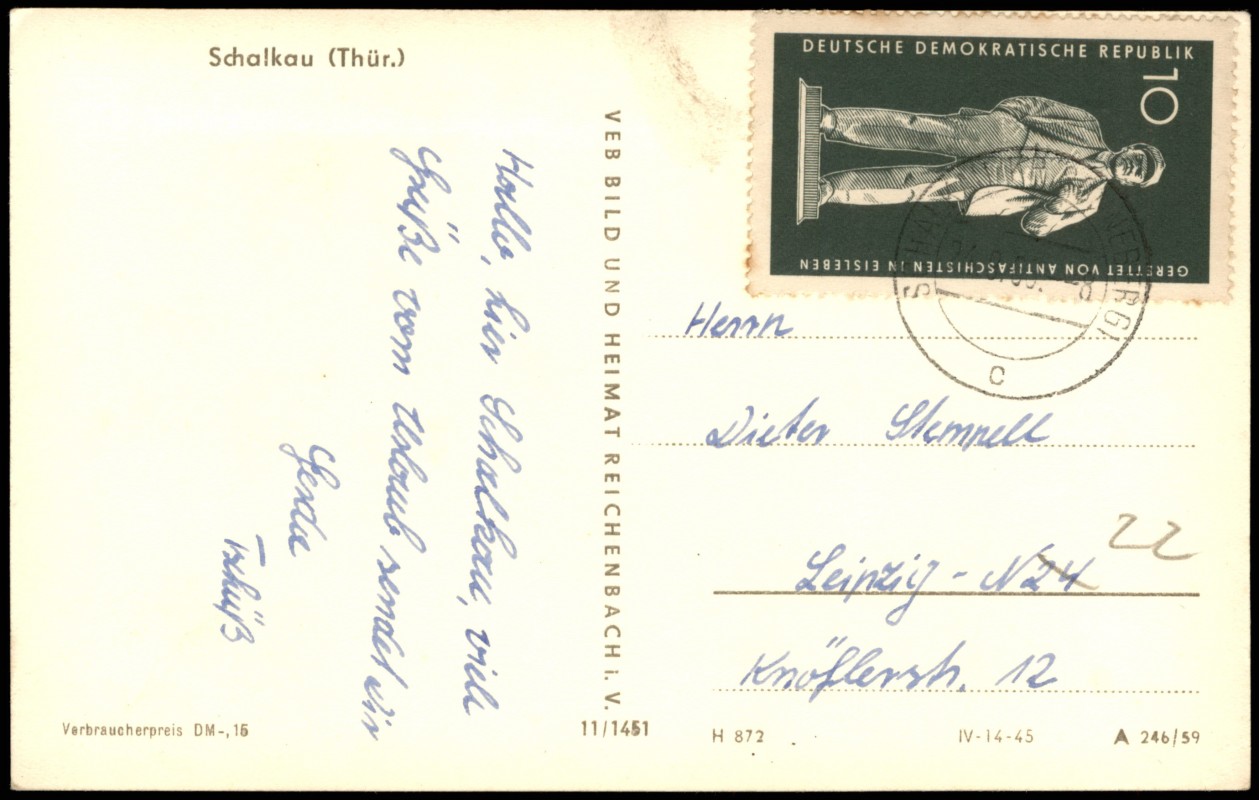 Schalkau (Thür.)
Hallo, hier Schalkau, viele
Grüße vom Urlaub sendet dir
Gerda
Tschüß
VEB BILD UND HEIMAT REICHENBACH i. V.
DEUTSCHE DEMOKRATISCHE REPUBLIK
10
GERETTET VON ANTIFASCHISTEN IN EISLEBEN
c
Herrn
Dieter Stempell
22
Leipzig - N24
Knöflerstr. 12
Verbraucherpreis DM-,15
11/1451
H 872
IV-14-45
A 246/59